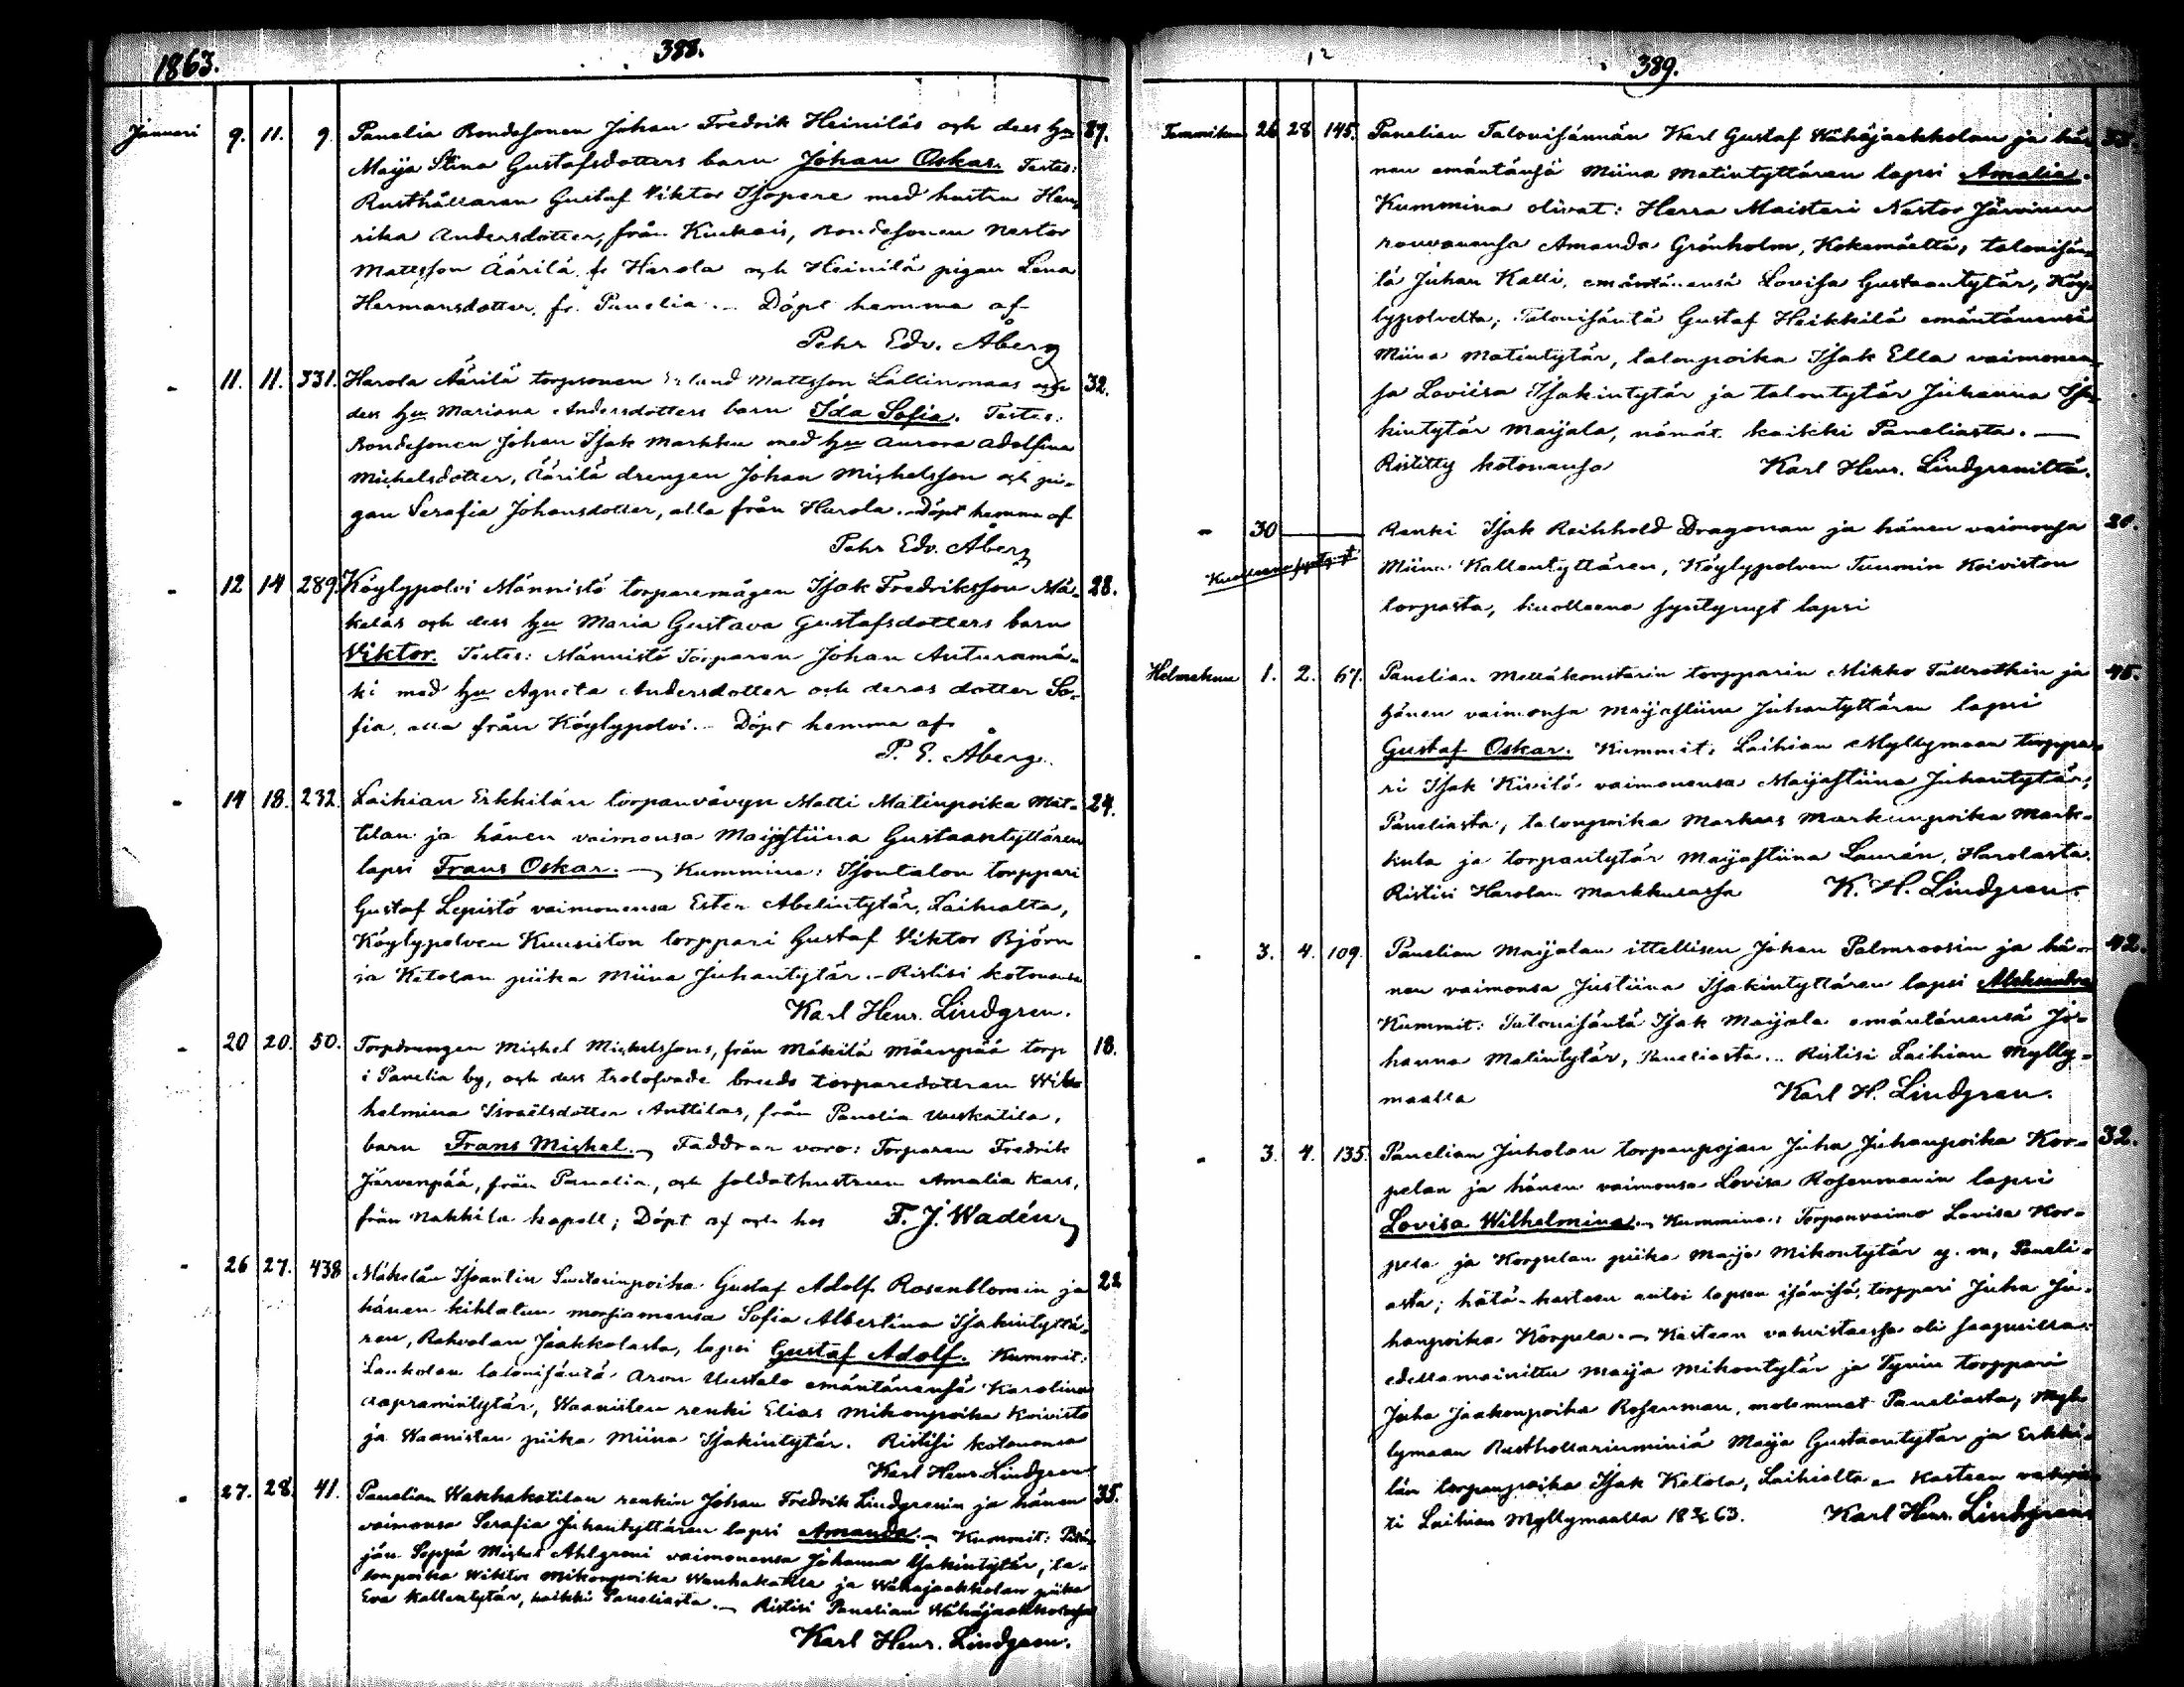 1863.
388.
Januari 9. 11. 9. Panelia Bondesonen Johan Fredrik Heiniläs och dess hu 27.
Maija Stina Gustafsdotters barn Johan Oskar. Testes:
Rusthållaren Gustaf Viktor Isopere med hustru Hen-
rika Andersdotter, från Kiukais, Bondesonen Nestor
Mattsson Äärilä, fr Harola och Heinilä pigan Lena
Hermansdotter, fr. Panelia. Döpt hemma af
Pehr Edv. Åberg
- 11. 11. 331. Harola Äärilä torpsonen Erland Mattsson Lallinmaas och 32.
dess hu Mariana Andersdotters barn Ida Sofia. Testes:
Bondesonen Johan Isak Markku med hu Aurora Adolfina
Michelsdotter, Äärilä drengen Johan Michelsson och pi-
gan Serafia Johansdotter, alla från Harola. Döpt hemma af
Pehr Edv. Åberg
- 12 14 289. Köylypolvi Männistö torparemågen Isak Fredriksson Mä- 28.
keläs och dess hu Maria Gustava Gustafsdotters barn
Viktor. Testes: Männistö Torparen Johan Anturamä-
ki med hu Agneta Andersdotter och deras dotter So-
fia, alla från Köylypolvi. Döpt hemma af
P. E. Åberg.
- 14 18. 232. Laihian Erkkilän torpanvävyn Matti Matinpoika Mat- 24.
tilan ja hänen vaimonsa Maijastiina Gustaantyttären
lapsi Frans Oskar. Kummina: Isontalon torppari
Gustaf Lepistö vaimonensa Ester Abelintytär, Laihialta,
Köylypolven Kuusiston torppari Gustaf Viktor Björn
ja Ketolan piika Miina Juhantytär. Ristisi kotonansa
Karl Henr. Lindgren.
- 20 20. 50. Torpdrengen Michel Michelssons, från Mäkilä Mäenpää torp 18.
i Panelia by, och dess trolofvade brud torparedottren Wil-
helmina Israelsdotter Anttilas, från Panelia Uuskatila,
barn Frans Michel. Faddrar voro: Torparen Fredrik
Järvenpää, från Panelia, och soldathustrun Amalia Kars,
från Nakkila kapell; Döpt af och hos F. J. Wadén
- 26 27. 438 Mäkelän Gustaf Adolf Rosenblomin ja 22
hänen kihlatun morsiamensa Sofia Albertina Isakintyttä-
ren, Rahvolan Jaakkolasta, lapsi Gustaf Adolf. Kummit:
talonisäntä Aron Uustalo emäntänensä Karolina
Waanisten renki Elias Mikonpoika Koivisto
ja Waanisten piika Miina Isakintytär. Ristisi kotonansa
Karl Henr. Lindgren
- 27. 28. 41. Panelian Wanhakatilan renkin Johan Fredrik Lindgrenin ja hänen 35.
vaimonsa Serafia Juhantyttären lapsi Amanda. Kummit: Pitä-
jän Seppä Michel Ahlgreni vaimonensa Johanna Isakintytär, ta-
lonpoika Wiktor Mikonpoika Wanhakatila ja Wähäjaakkolan piika
Eva Kallentytär, kaikki Paneliasta. Ristisi Panelian Wähäjaakkolassa
Karl Henr. Lindgren.
12
389.
Tammikuu 26 28 145. Panelian Talonisännän Karl Gustaf Wähäjaakkolan ja hä-
nen emäntänsä Miina Matintyttären lapsi Amalia.
Kummina olivat: Herra Maisteri Nestor Järvinen
rouvanensa Amanda Grönholm, Kokemäeltä, talonisän-
tä Juhan Kalli, emäntänensä Lovisa Gustaantytär, Köy-
lypolvelta; Talonisäntä Gustaf Heikkilä emäntänensä
Miina Matintytär, talonpoika Isak Ella vaimonen-
sa Loviisa Isakintytär ja talontytär Juhanna Isa-
kintytär Maijala, nämät kaikki Paneliasta.
Ristitty kotonansa Karl Henr. Lindgreniltä.
- 30 Renki Isak Reihhold Dragonan ja hänen vaimonsa
Kuolleena syntynyt
Miina Kallentyttären, Köylypolven Tuomin Koiviston
torpasta, kuolleena syntynyt lapsi
Helmikuu 1. 2. 67. Panelian torpparin Mikko Tallrothin ja 45.
hänen vaimonsa Maijastiina Juhantyttären lapsi
Gustaf Oskar. Kummit: Laihian Myllymaan torppa-
ri Isak Kivilä vaimonensa Maijastiina Juhantytär,
Paneliasta, talonpoika Markus Markunpoika Mark-
kula ja torpantytär Maijastiina Laurén, Harolasta.
Ristisi Harolan Markkulassa K. H. Lindgren.
- 3. 4. 109. Panelian Maijalan ittellisen Johan Palmroosin ja hä- 42.
nen vaimonsa Justiina Isakintyttären lapsi Aleksandra
Kummit: Talonisäntä Isak Maijala emäntänensä Jo-
hanna Matintytär, Paneliasta. Ristisi Laihian Mylly-
maalla Karl H. Lindgren.
- 3. 4. 135. Panelian Juholan torpanpojan Juha Juhanpoika Kor- 32.
pelan ja hänen vaimonsa Lovisa Rosenmanin lapsi
Lovisa Wilhelmina. Kummina: Torpanvaimo Lovisa Kor-
pela ja Korpelan piika Maija Mikontytär y. m. Paneli-
asta; hätä-kasteen antoi lapsen isänisä, torppari Juha Ju-
hanpoika Korpela. Kasteen vahvistaessa oli saapuilla:
edellämainittu Maija Mikontytär ja Tynin torppari
Juha Jaakonpoika Rosenman, molemmat Paneliasta, Myl-
lymaan Rusthollarinminiä Maija Gustaantytär ja Erkki-
län torpanpoika Isak Ketola, Laihialta. Kasteen vahvis-
ti Laihian Myllymaalla 63. Karl Henr. Lindgren